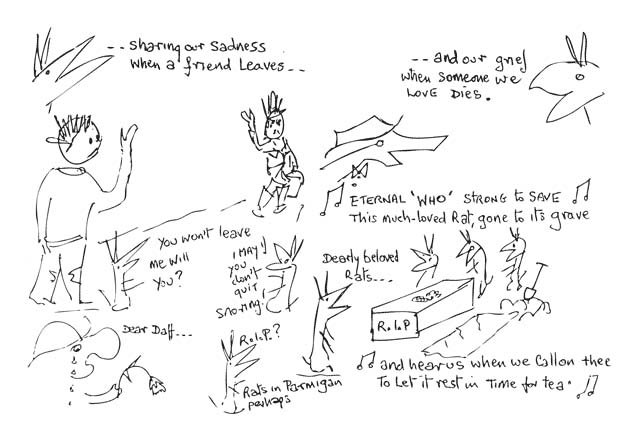 -- sharing our sadness
when a friend leaves --
-- and our grief
when someone we
love dies.
ETERNAL 'WHO' STRONG to SAVE
This much-loved Rat, gone to it's grave
You won't leave
me will
you?
I MAY!
you
don't
quit
snoring!
Dearly beloved
Rats...
R.I.P
Dear Daff...
R.I.P.?
Rats in Parmigan
perhaps
and hear us when we call on thee
To let it rest in Time for tea.